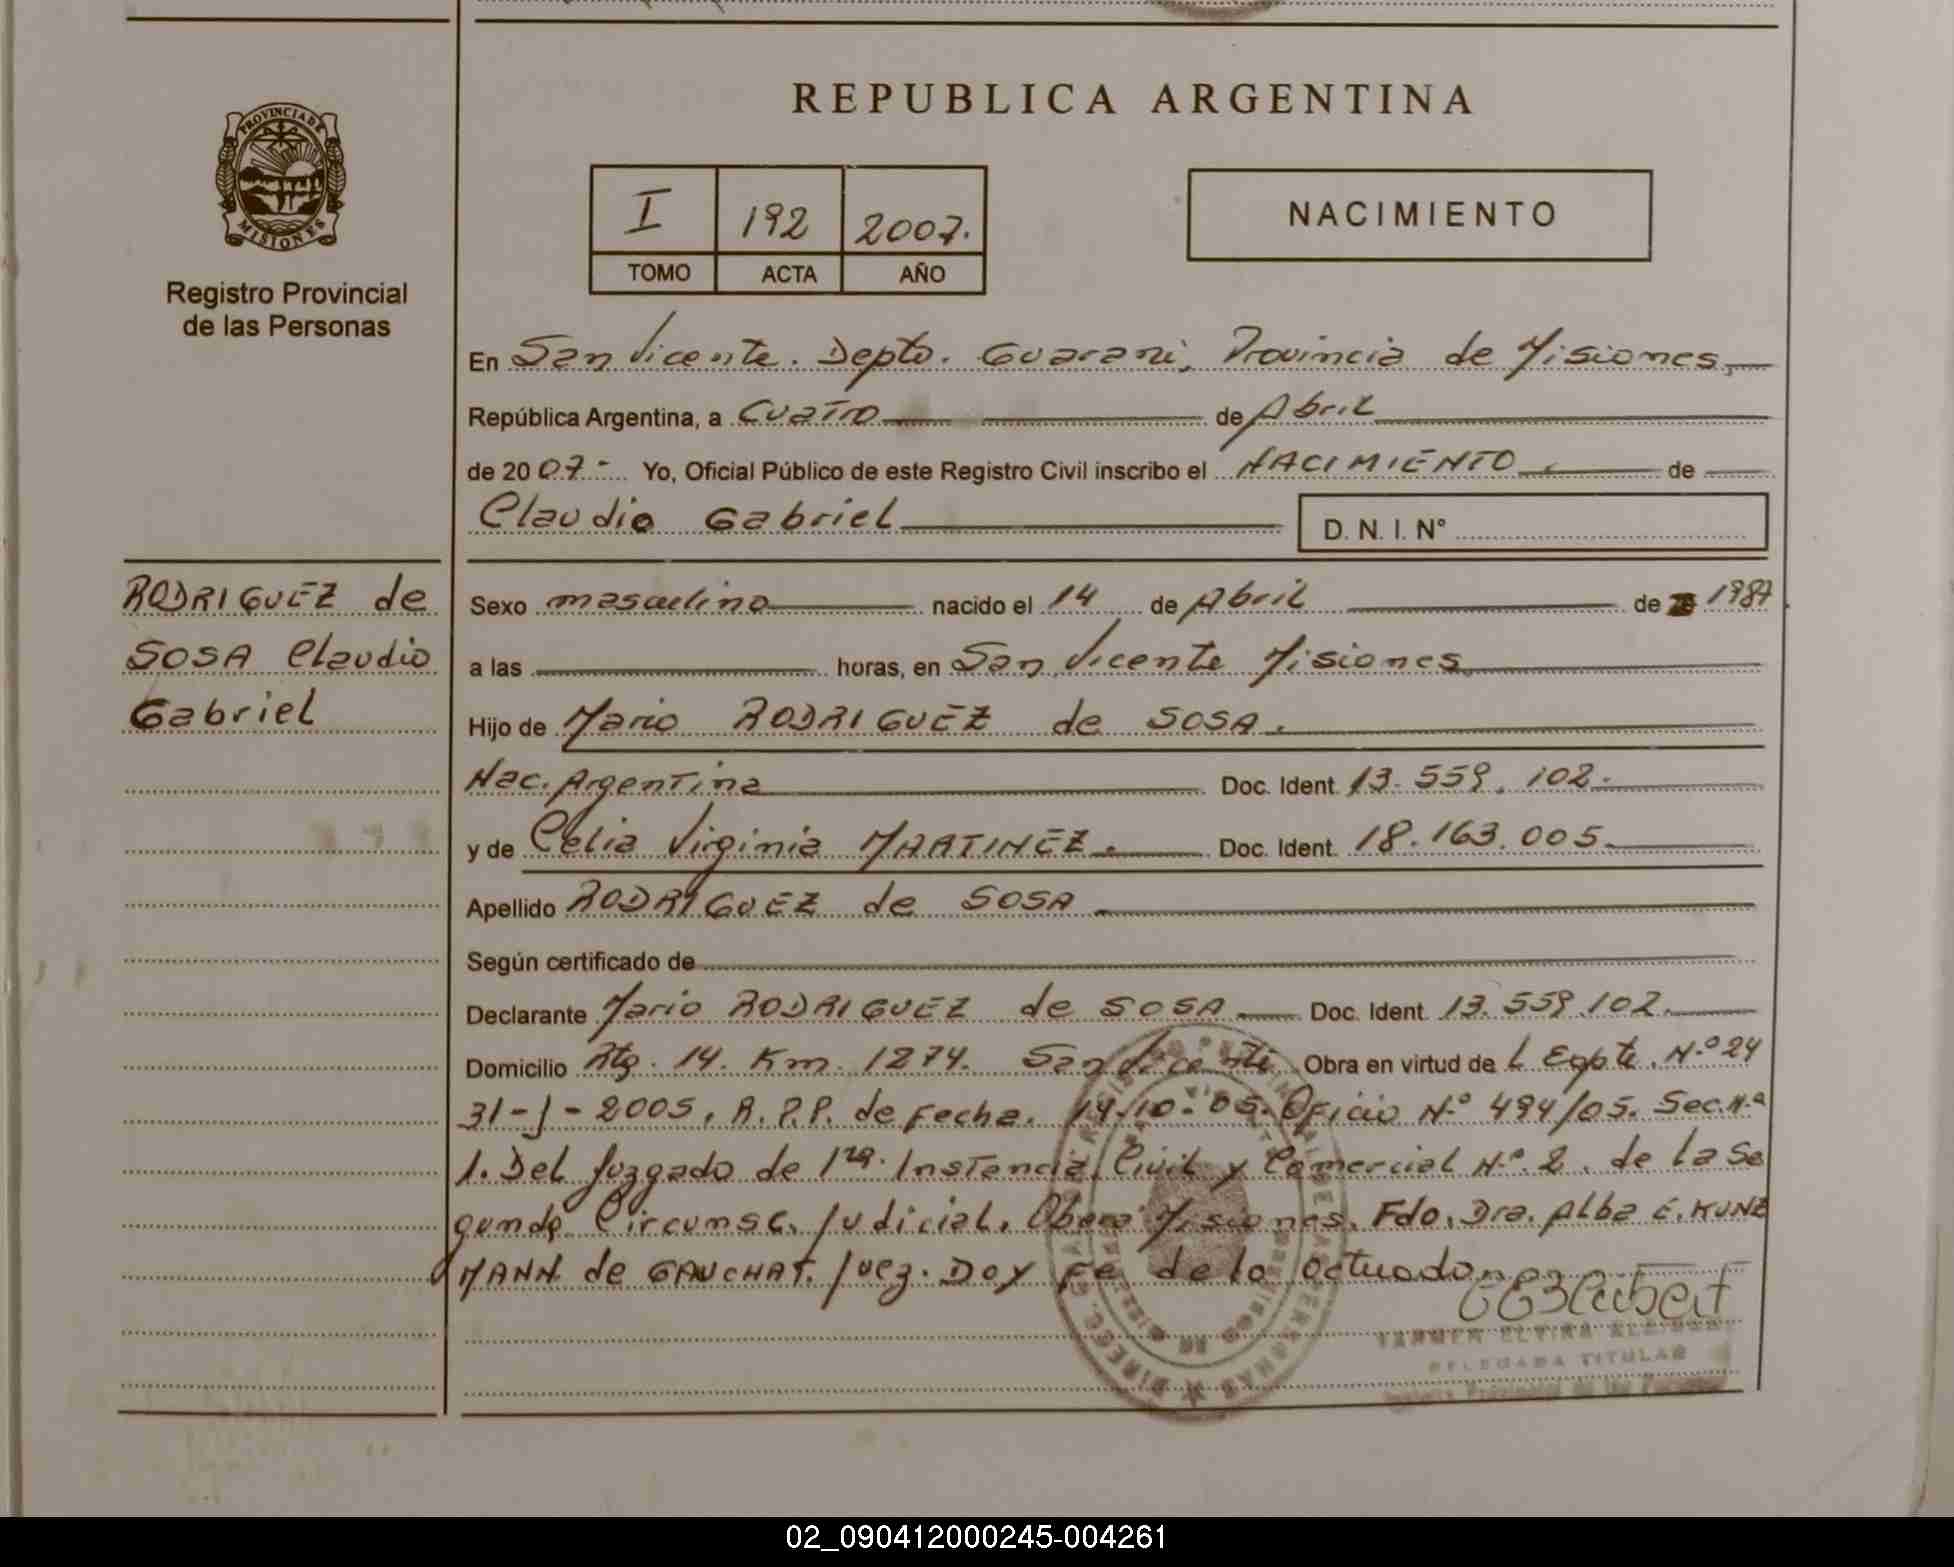 REPUBLICA ARGENTINA
PROVINCIA DE
MISIONES
Registro Provincial
de las Personas
I 192 2007.
TOMO ACTA AÑO
NACIMIENTO
En San Vicente. Depto. Guarani, Provincia de Misiones,
República Argentina, a Cuatro de Abril
de 2007- Yo, Oficial Público de este Registro Civil inscribo el NACIMIENTO. de
Claudio Gabriel
D. N. I. N°
RODRIGUEZ de
SOSA Claudio
Gabriel
Sexo masculino nacido el 14 de Abril de 1987
a las horas, en San Vicente Misiones
Hijo de Mario RODRIGUEZ de SOSA.
Nac. Argentina Doc. Ident. 13.559.102.
y de Celia Virginia MARTINEZ. Doc. Ident. 18.163.005.
Apellido RODRIGUEZ de SOSA
Según certificado de
Declarante Mario RODRIGUEZ de SOSA Doc. Ident. 13.559.102.
Domicilio Rta. 14. Km. 1274. San Vicente Obra en virtud de L Expte. N.º 24
31-J-2005, R.P.P. de Fecha. 14.10.05. Oficio N.º 494/05. Sec.N.º
1. Del Juzgado de 1ra. Instancia Civil y Comercial N.º 2. de la Se
gunda Circunsc. Judicial. Obera Misiones. Fdo. Dra. Alba E. KUNZ
MANN de GAUCHAT. Juez. Doy Fe de lo actuado.
DELEGADA TITULAR
Registro Provincial de las Personas
02_090412000245-004261